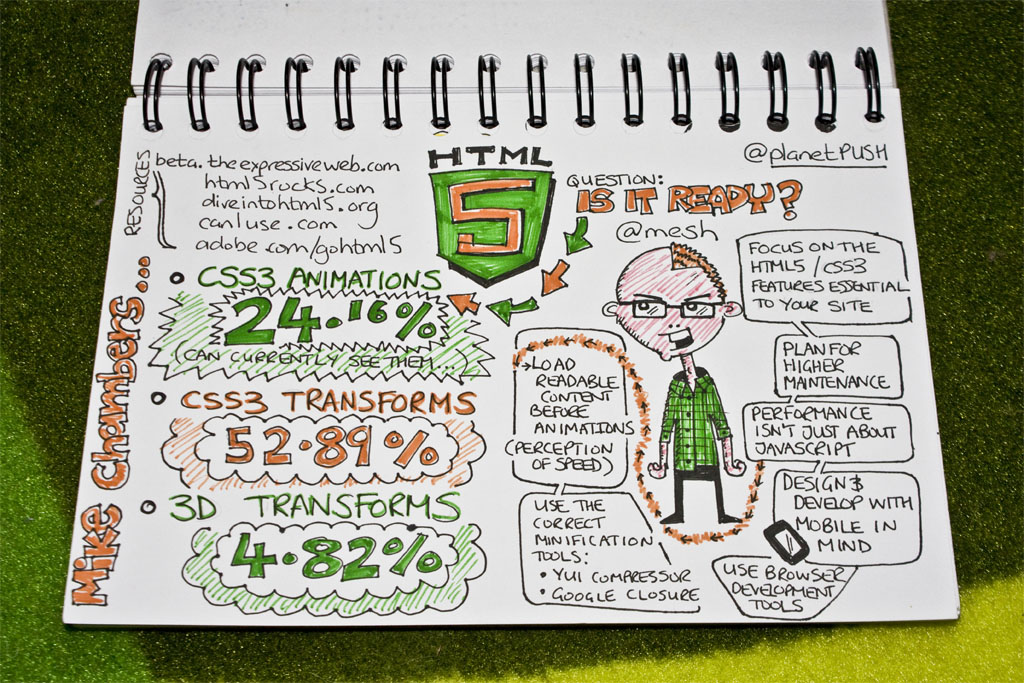 RESOURCES
beta.theexpressiveweb.com
html5rocks.com
diveintohtml5.org
canIuse.com
adobe.com/gohtml5
HTML
5
@planetPUSH
QUESTION:
IS IT READY?
@mesh
Mike Chambers...
CSS3 ANIMATIONS
24.16%
(CAN CURRENTLY SEE THEM...)
CSS3 TRANSFORMS
52.89%
3D TRANSFORMS
4.82%
LOAD
READABLE
CONTENT
BEFORE
ANIMATIONS
(PERCEPTION
OF SPEED)
USE THE
CORRECT
MINIFICATION
TOOLS:
• YUI COMPRESSOR
• GOOGLE CLOSURE
FOCUS ON THE
HTML5 / CSS3
FEATURES ESSENTIAL
TO YOUR SITE
PLAN FOR
HIGHER
MAINTENANCE
PERFORMANCE
ISN'T JUST ABOUT
JAVASCRIPT
DESIGN &
DEVELOP WITH
MOBILE IN
MIND
USE BROWSER
DEVELOPMENT
TOOLS